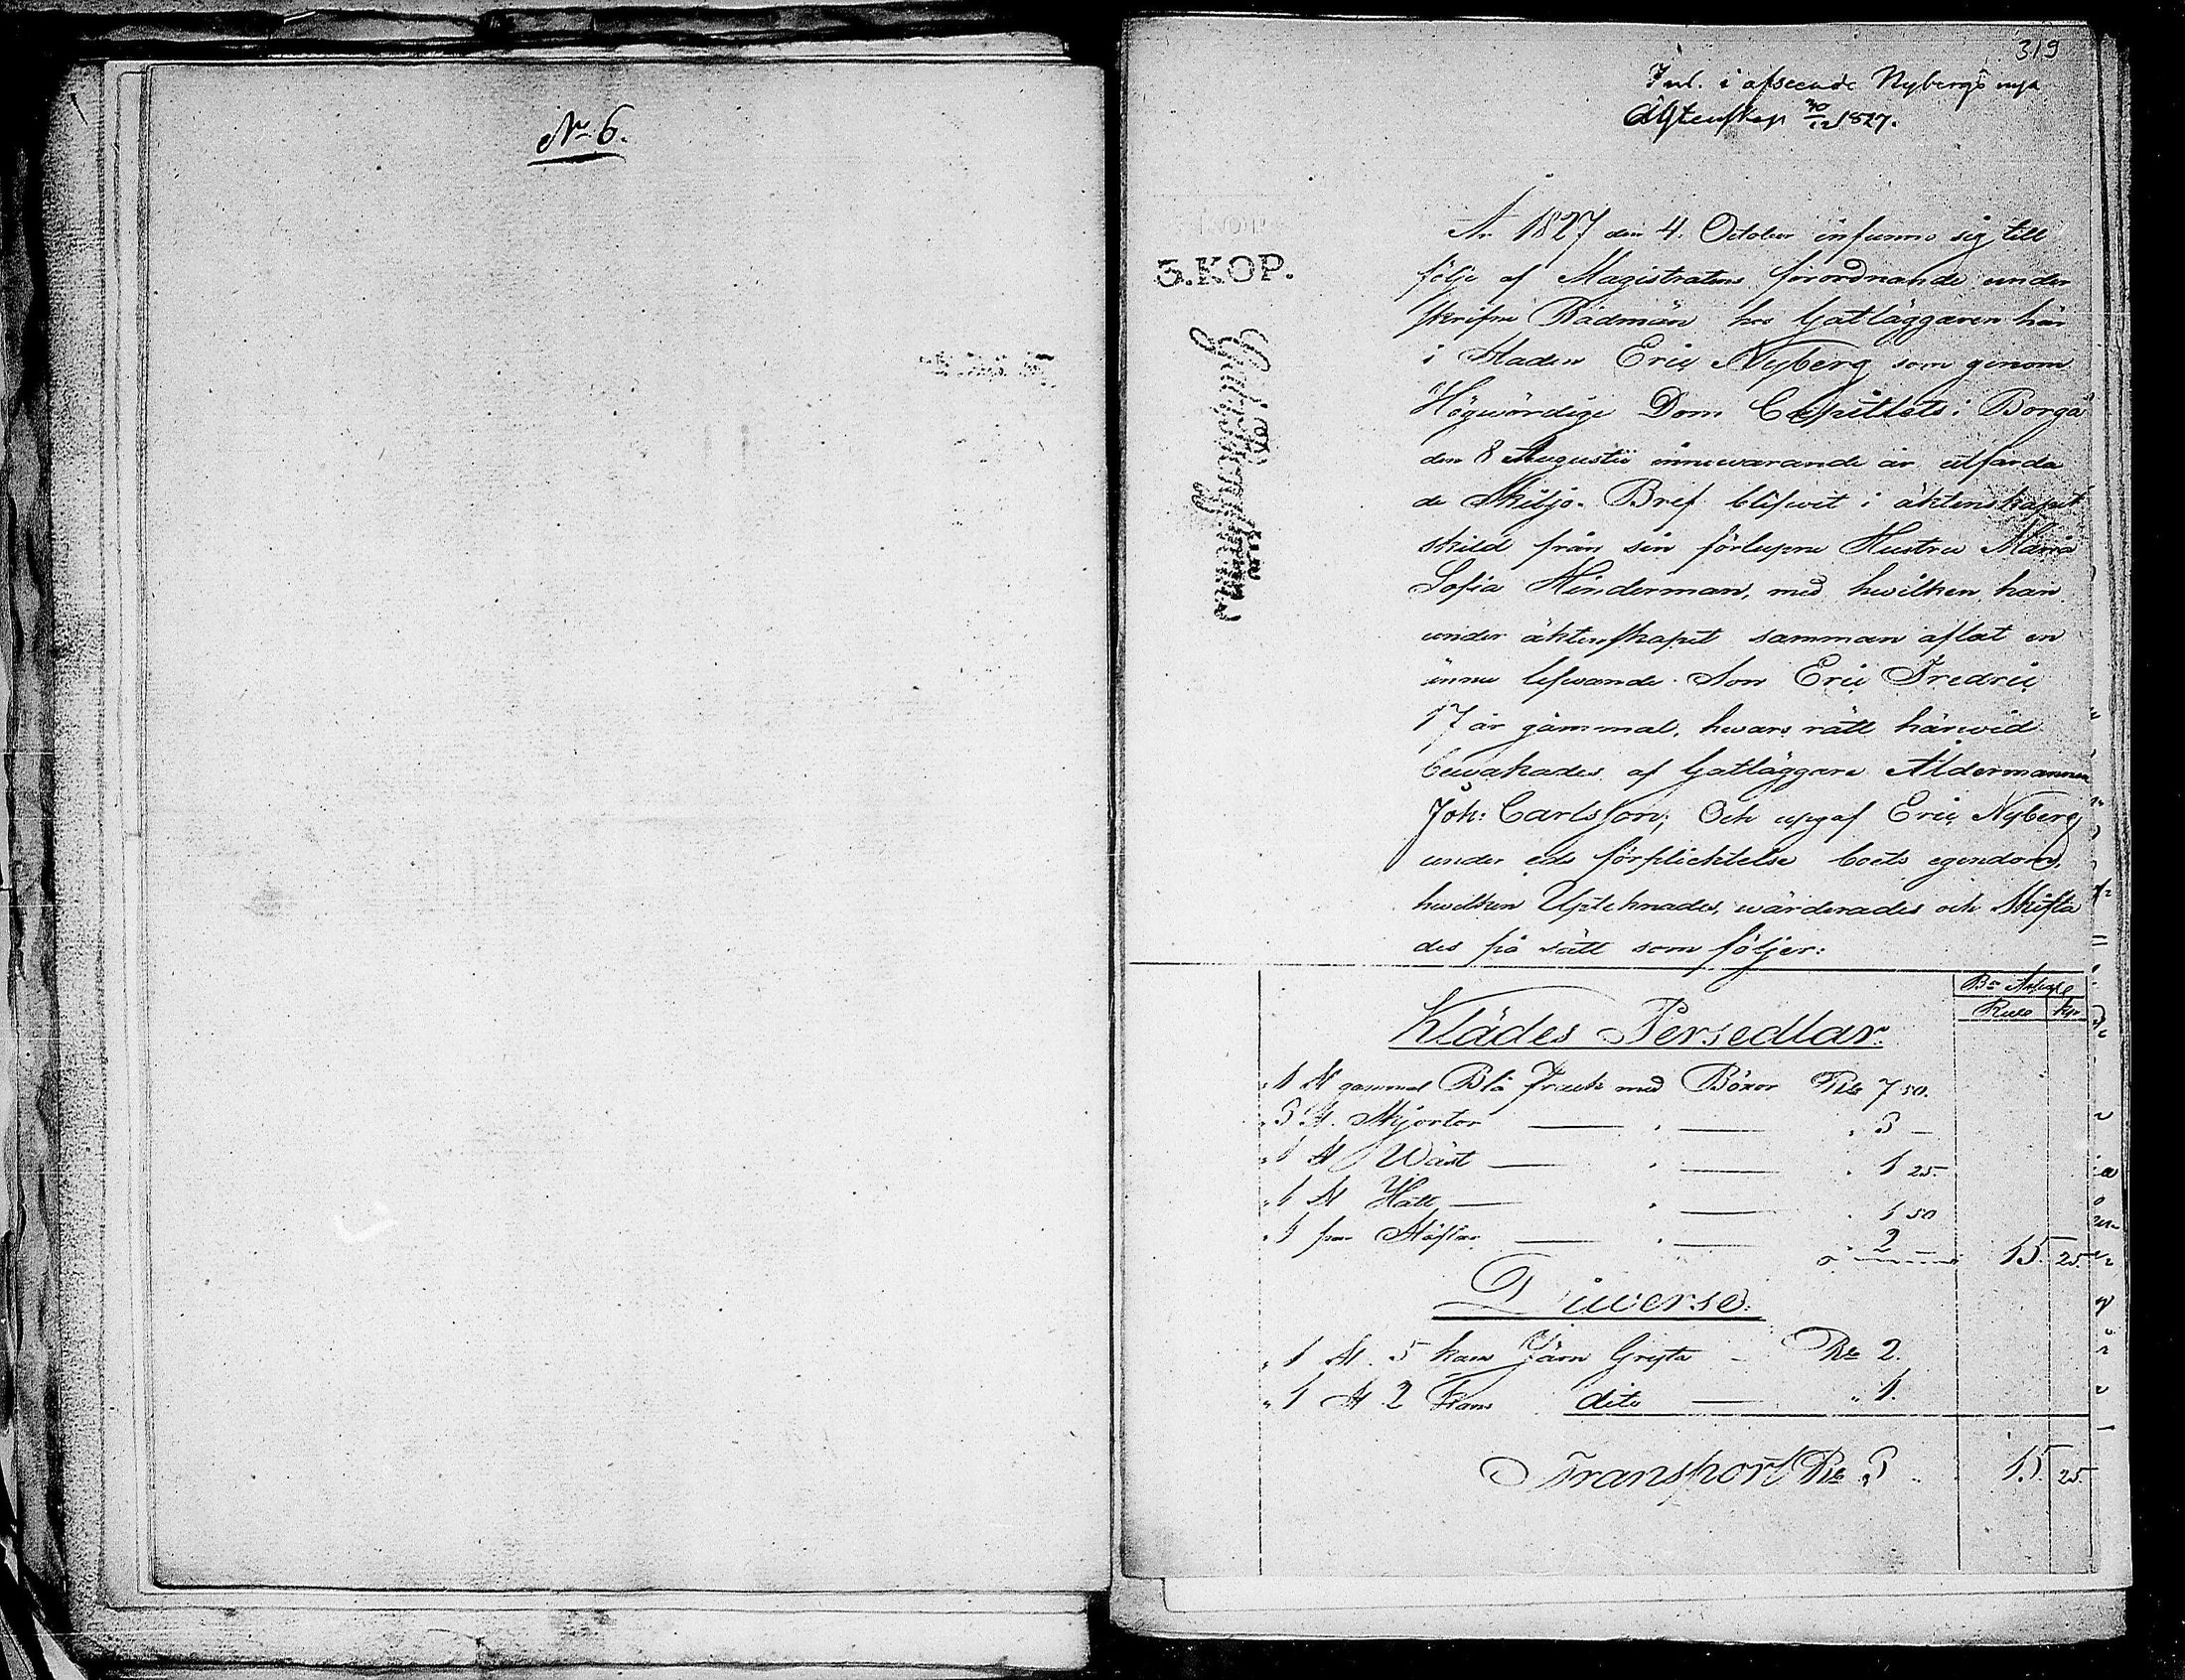 No 6.
319
Inl. i afseende Nybergs nya
Äktenskap 30/12 1827.
3. KOP.
År 1827 den 4. October infunno sig till
följe af Magistratens förordnande under
skrifne Rådmän hos Gatläggaren här
i Staden Eric Nyberg som genom
Högwördige Dom Capitlets i Borgå
den 8 Augustii innewarande år utfärda
de Skiljo-Bref blifwit i äktenskapet
skild från sin förlupne Hustru Maria
Sofia Hinderman, med hwilken han
under äktenskapet samman aflat en
ännu lefwande Son Eric Fredric
17 år gammal, hwars rätt härwid
bewakades af Gatläggare Åldermannen
Joh: Carlsson; Och upgaf Eric Nyberg
under eds förplichtelse boets egendom,
hwilken Upteknades, wärderades och Skifta
des på sätt som följer:
Bco Assign
Rubl kop
Klädes Persedlar.
" 1 st gammal Blå Frack med Böxor Rub 7 50.
" 3 st. Skjortor " " 3 —
" 1 st Wäst " " 1 25.
" 1 st Hatt " " 1 50
" 1 par Stöflar " " 2 — 15. 25.
Diverse.
" 1 st. 5 kans Järn Gryta — Rub 2.
" 1 st 2 kans dito — " 1.
Transport Rub 3 " 15. 25.